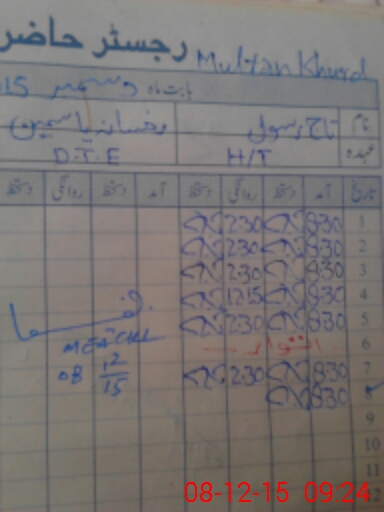 رجسٹر حاضر Multan Khurd
بابت ماہ دسمبر 15
نام تاج رسول رخسانہ یاسمین
عہدہ H/T D.T.E
تاریخ آمد دستخط روانگی دستخط آمد دستخط روانگی دستخط
1 830 230
2 830 230
3 830 230
4 830 1215
5 830 230
6 اتوار
7 830 230
8 830
9
10
11
12
MEA CKL
08 12/15
08-12-15 09:24